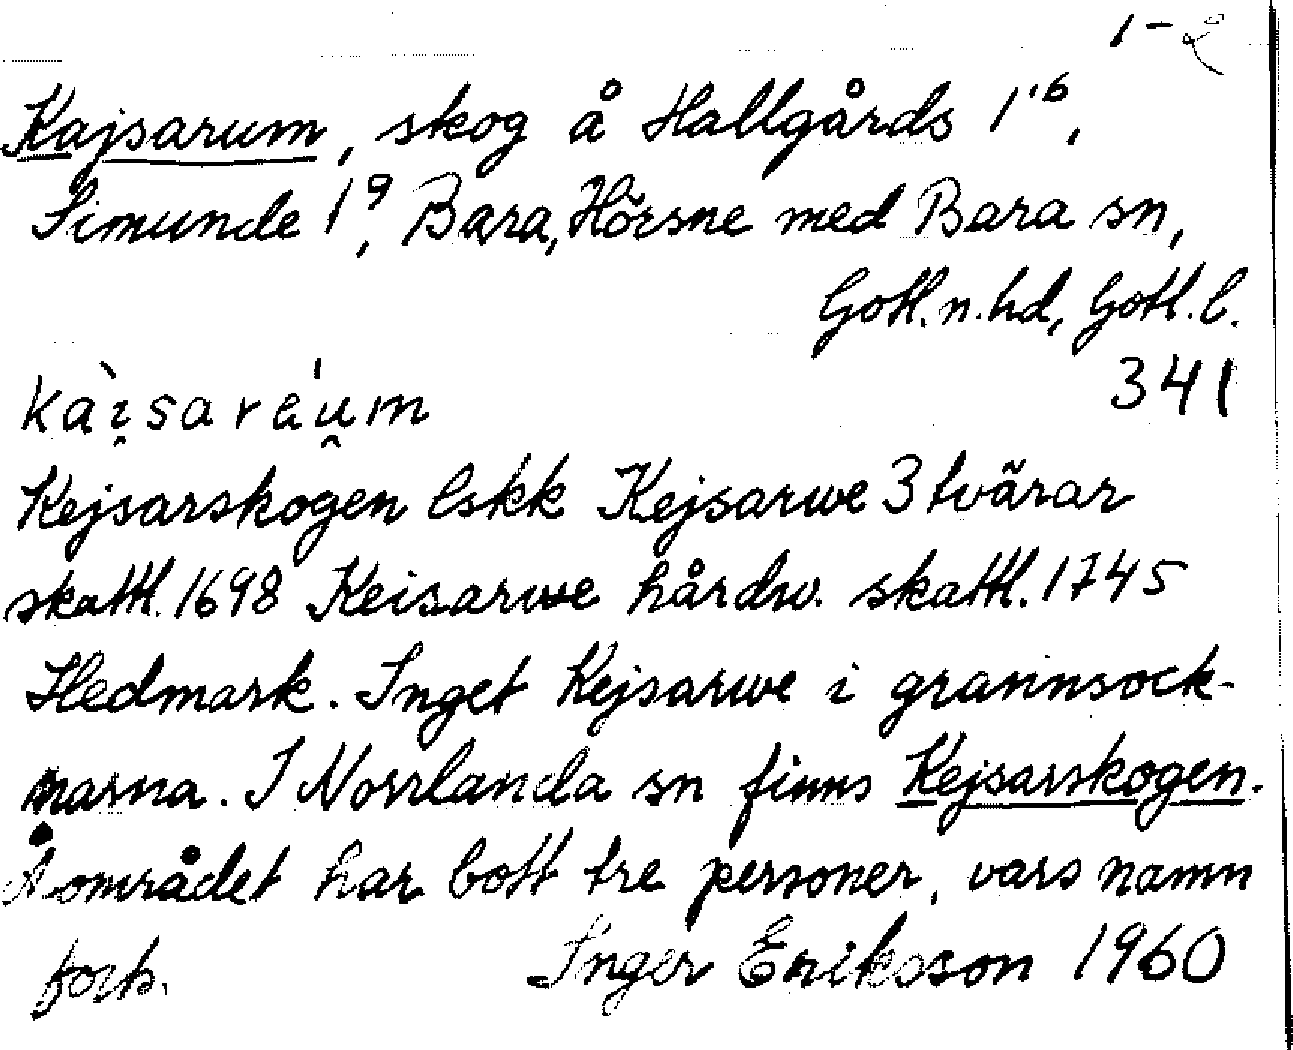 1-2
Kajsarum, skog å Hallgårds 1¹⁶,
Simunde 1⁹, Bara, Hörsne med Bara sn,
Gotl. n. hd, Gotl. l.
341
kài̯saráu̯m
Kejsarskogen lskk Kejsarwe 3 tvärar
skattl. 1698 Keisarwe hårdw. skattl. 1745
Hedmark. Inget Kejsarwe i grannsock-
narna. I Norrlanda sn finns Kejsarskogen.
Å området har bott tre personer, vars namn
forts. Inger Eriksson 1960